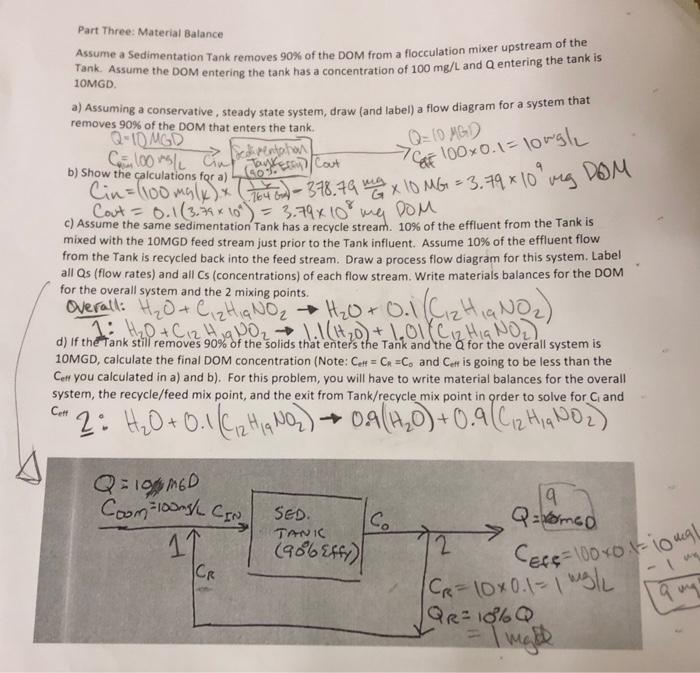 Part Three: Material Balance
Assume a Sedimentation Tank removes 90% of the DOM from a flocculation mixer upstream of the
Tank. Assume the DOM entering the tank has a concentration of 100 mg/L and Q entering the tank is
10MGD.
a) Assuming a conservative, steady state system, draw (and label) a flow diagram for a system that
removes 90% of the DOM that enters the tank.
Q=10MGD
Q=10 MGD
100 mg/L Cin
Sedimentation
Tank
(90% Effi)
Cout
100x0.1=10mg/L
b) Show the calculations for a)
Cin=(100 mg/L)x = 378.79 mg/G x 10 MG = 3.79x10⁹ mg DOM
Cout = 0.1(3.79x10⁹) = 3.79x10⁸ mg DOM
c) Assume the same sedimentation Tank has a recycle stream. 10% of the effluent from the Tank is
mixed with the 10MGD feed stream just prior to the Tank influent. Assume 10% of the effluent flow
from the Tank is recycled back into the feed stream. Draw a process flow diagram for this system. Label
all Qs (flow rates) and all Cs (concentrations) of each flow stream. Write materials balances for the DOM
for the overall system and the 2 mixing points.
Overall: H₂O + C₁₂H₁₉NO₂ → H₂O + 0.1(C₁₂H₁₉NO₂)
1: H₂O + C₁₂H₁₉NO₂ → 1.1(H₂O) + 1.01(C₁₂H₁₉NO₂)
d) If the Tank still removes 90% of the solids that enters the Tank and the Q for the overall system is
10MGD, calculate the final DOM concentration (Note: Ceff = CR =C₀ and Ceff is going to be less than the
Ceff you calculated in a) and b). For this problem, you will have to write material balances for the overall
system, the recycle/feed mix point, and the exit from Tank/recycle mix point in order to solve for Ci and
Ceff
2: H₂O + 0.1(C₁₂H₁₉NO₂) → 0.9(H₂O) + 0.9(C₁₂H₁₉NO₂)
Q=10 MGD
CDOM=100mg/L CIN
SED.
TANK
(90% Effi)
C₀
9
Q= MGD
1
2
CEff=100x0.1=10 mg/L
- 1 mg
9 mg
CR
CR=10x0.1=1 mg/L
QR=10%Q
= 1